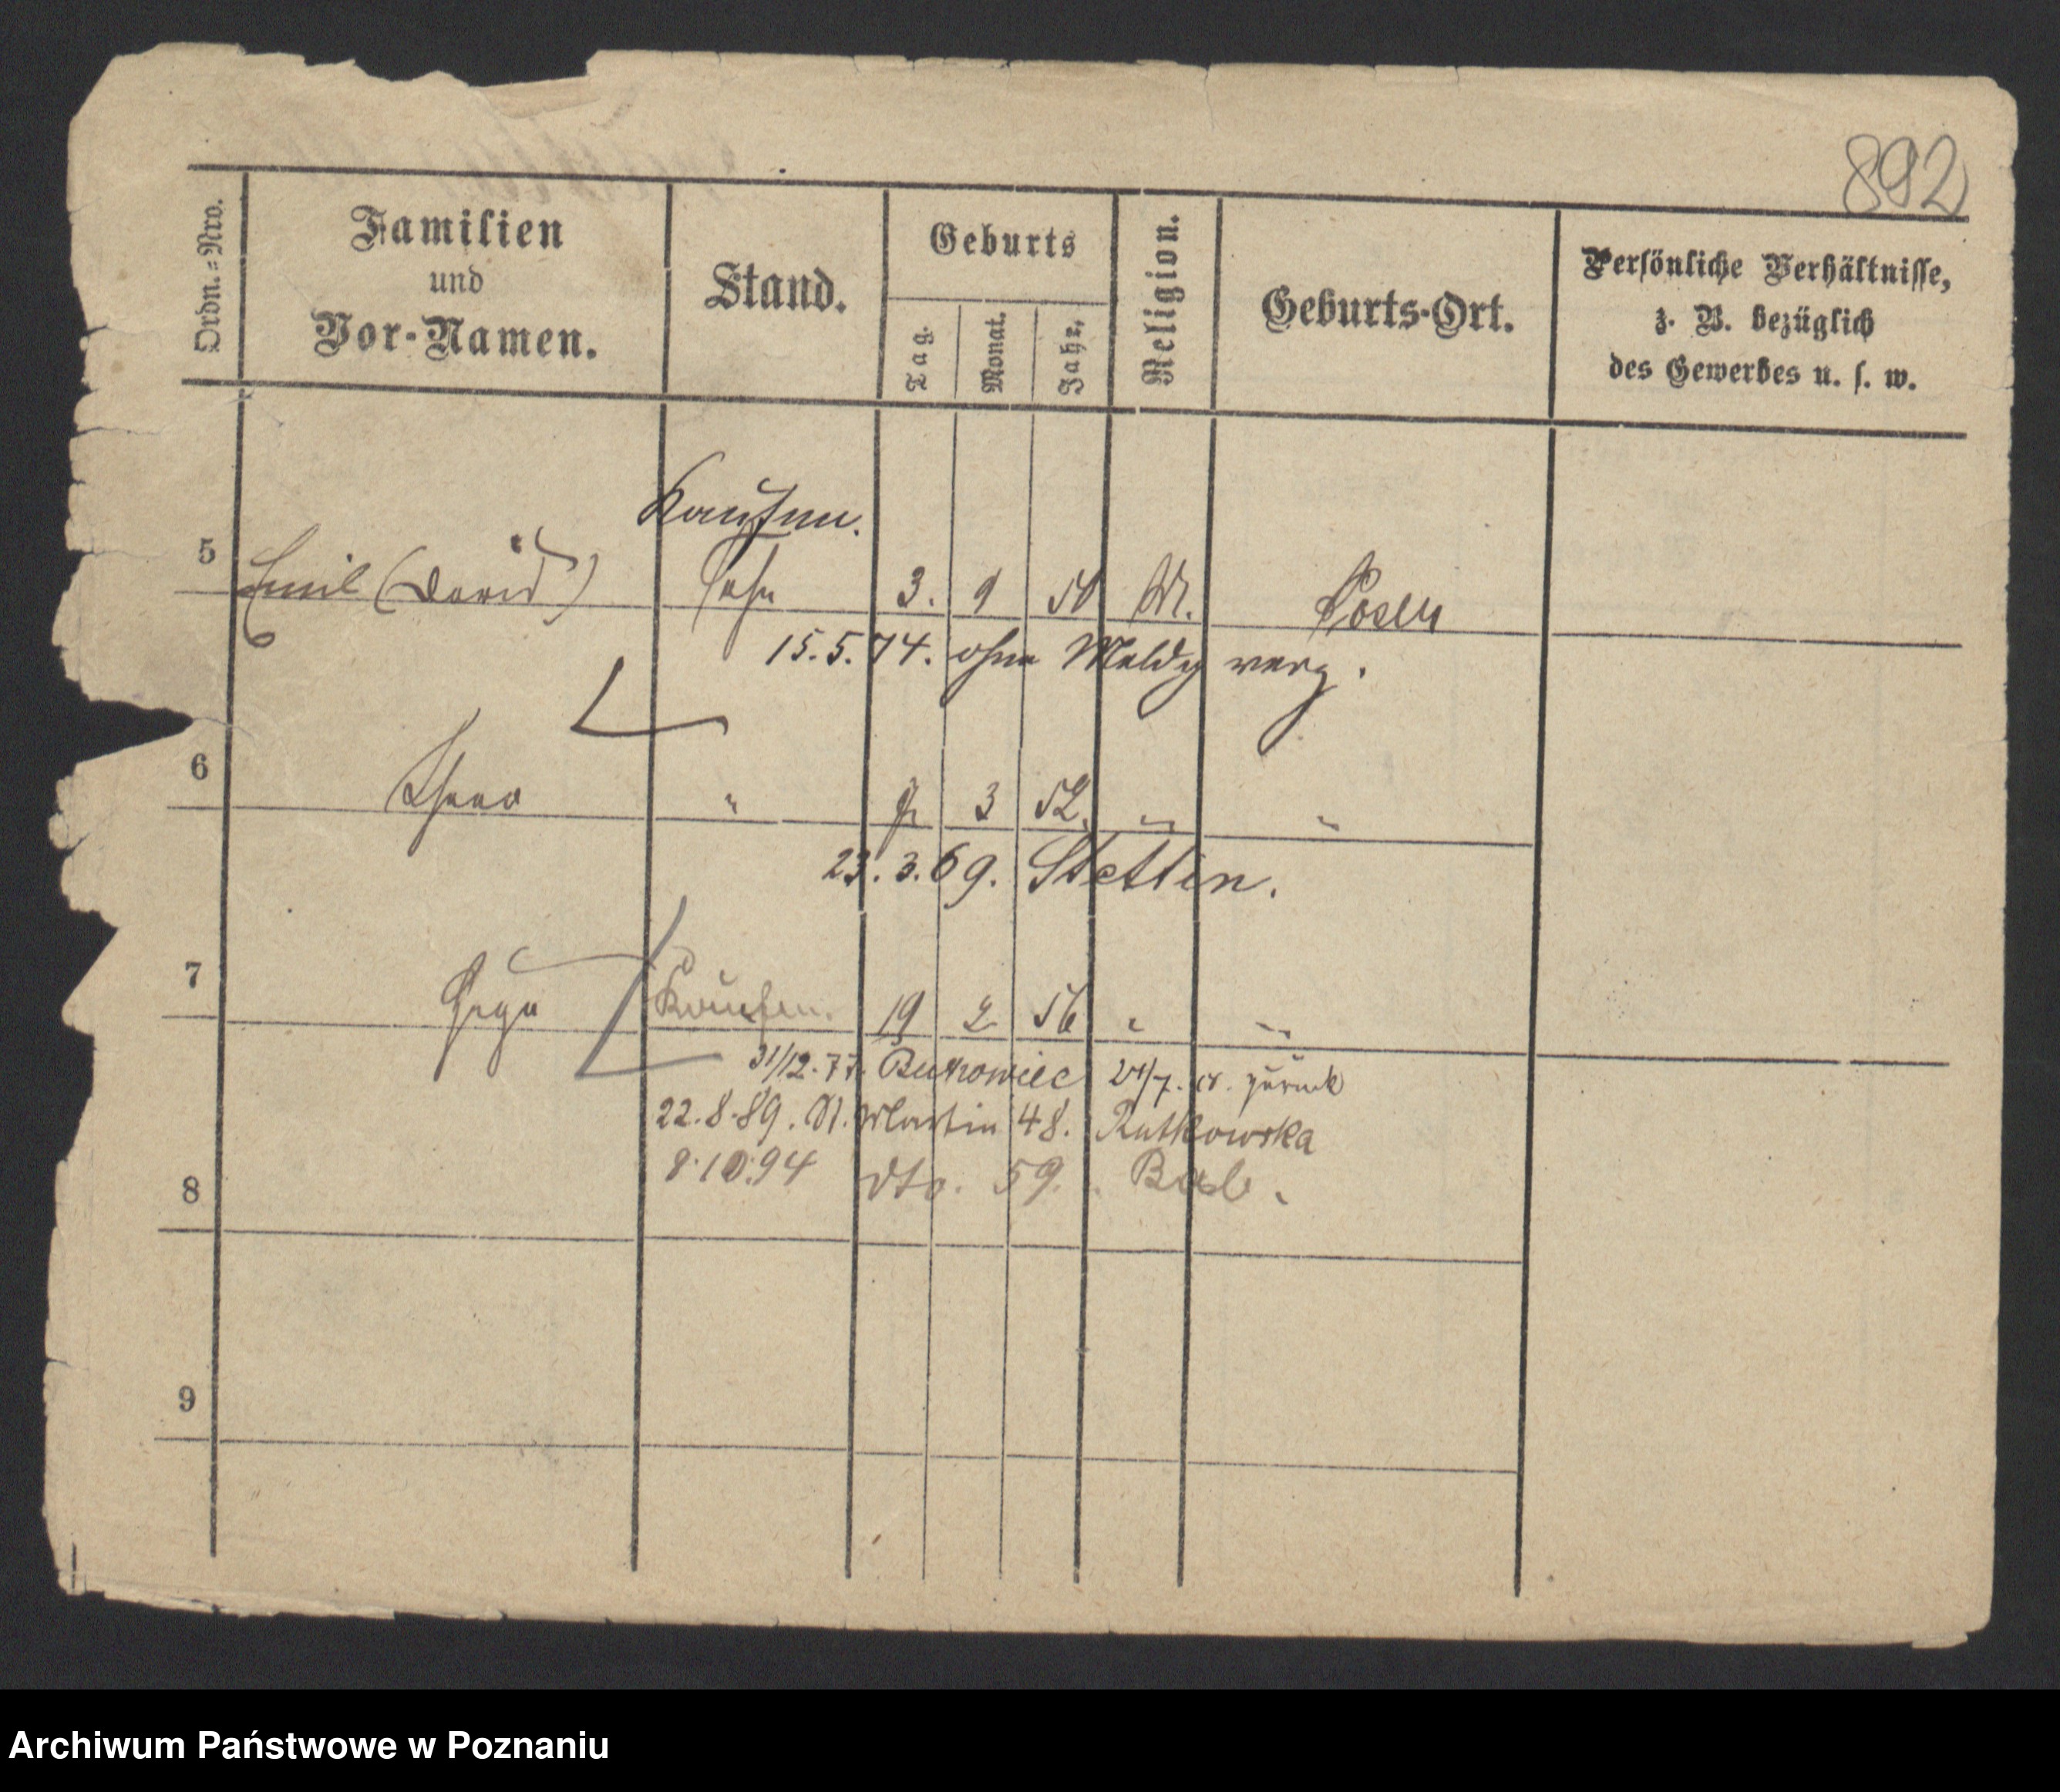 892
Ordn.=Nro.
Familien
und
Vor-Namen.
Stand.
Geburts
Tag.
Monat.
Jahr.
Religion.
Geburts-Ort.
Persönliche Verhältnisse,
z. B. bezüglich
des Gewerbes u. s. w.
Kaufm.
5 Emil (David) Sohn 3. 9 50 M. Posen
15.5.74. ohne Meldg verz.
6 " 3 52. " "
23.3.69. Stettin.
7 Hugo Kaufm. 19 2 56 " "
31/12.77. Bukowiec zurück
22.8.89. St. Martin 48. Rutkowska
8.10.94 dto. 59.
8
9
Archiwum Państwowe w Poznaniu